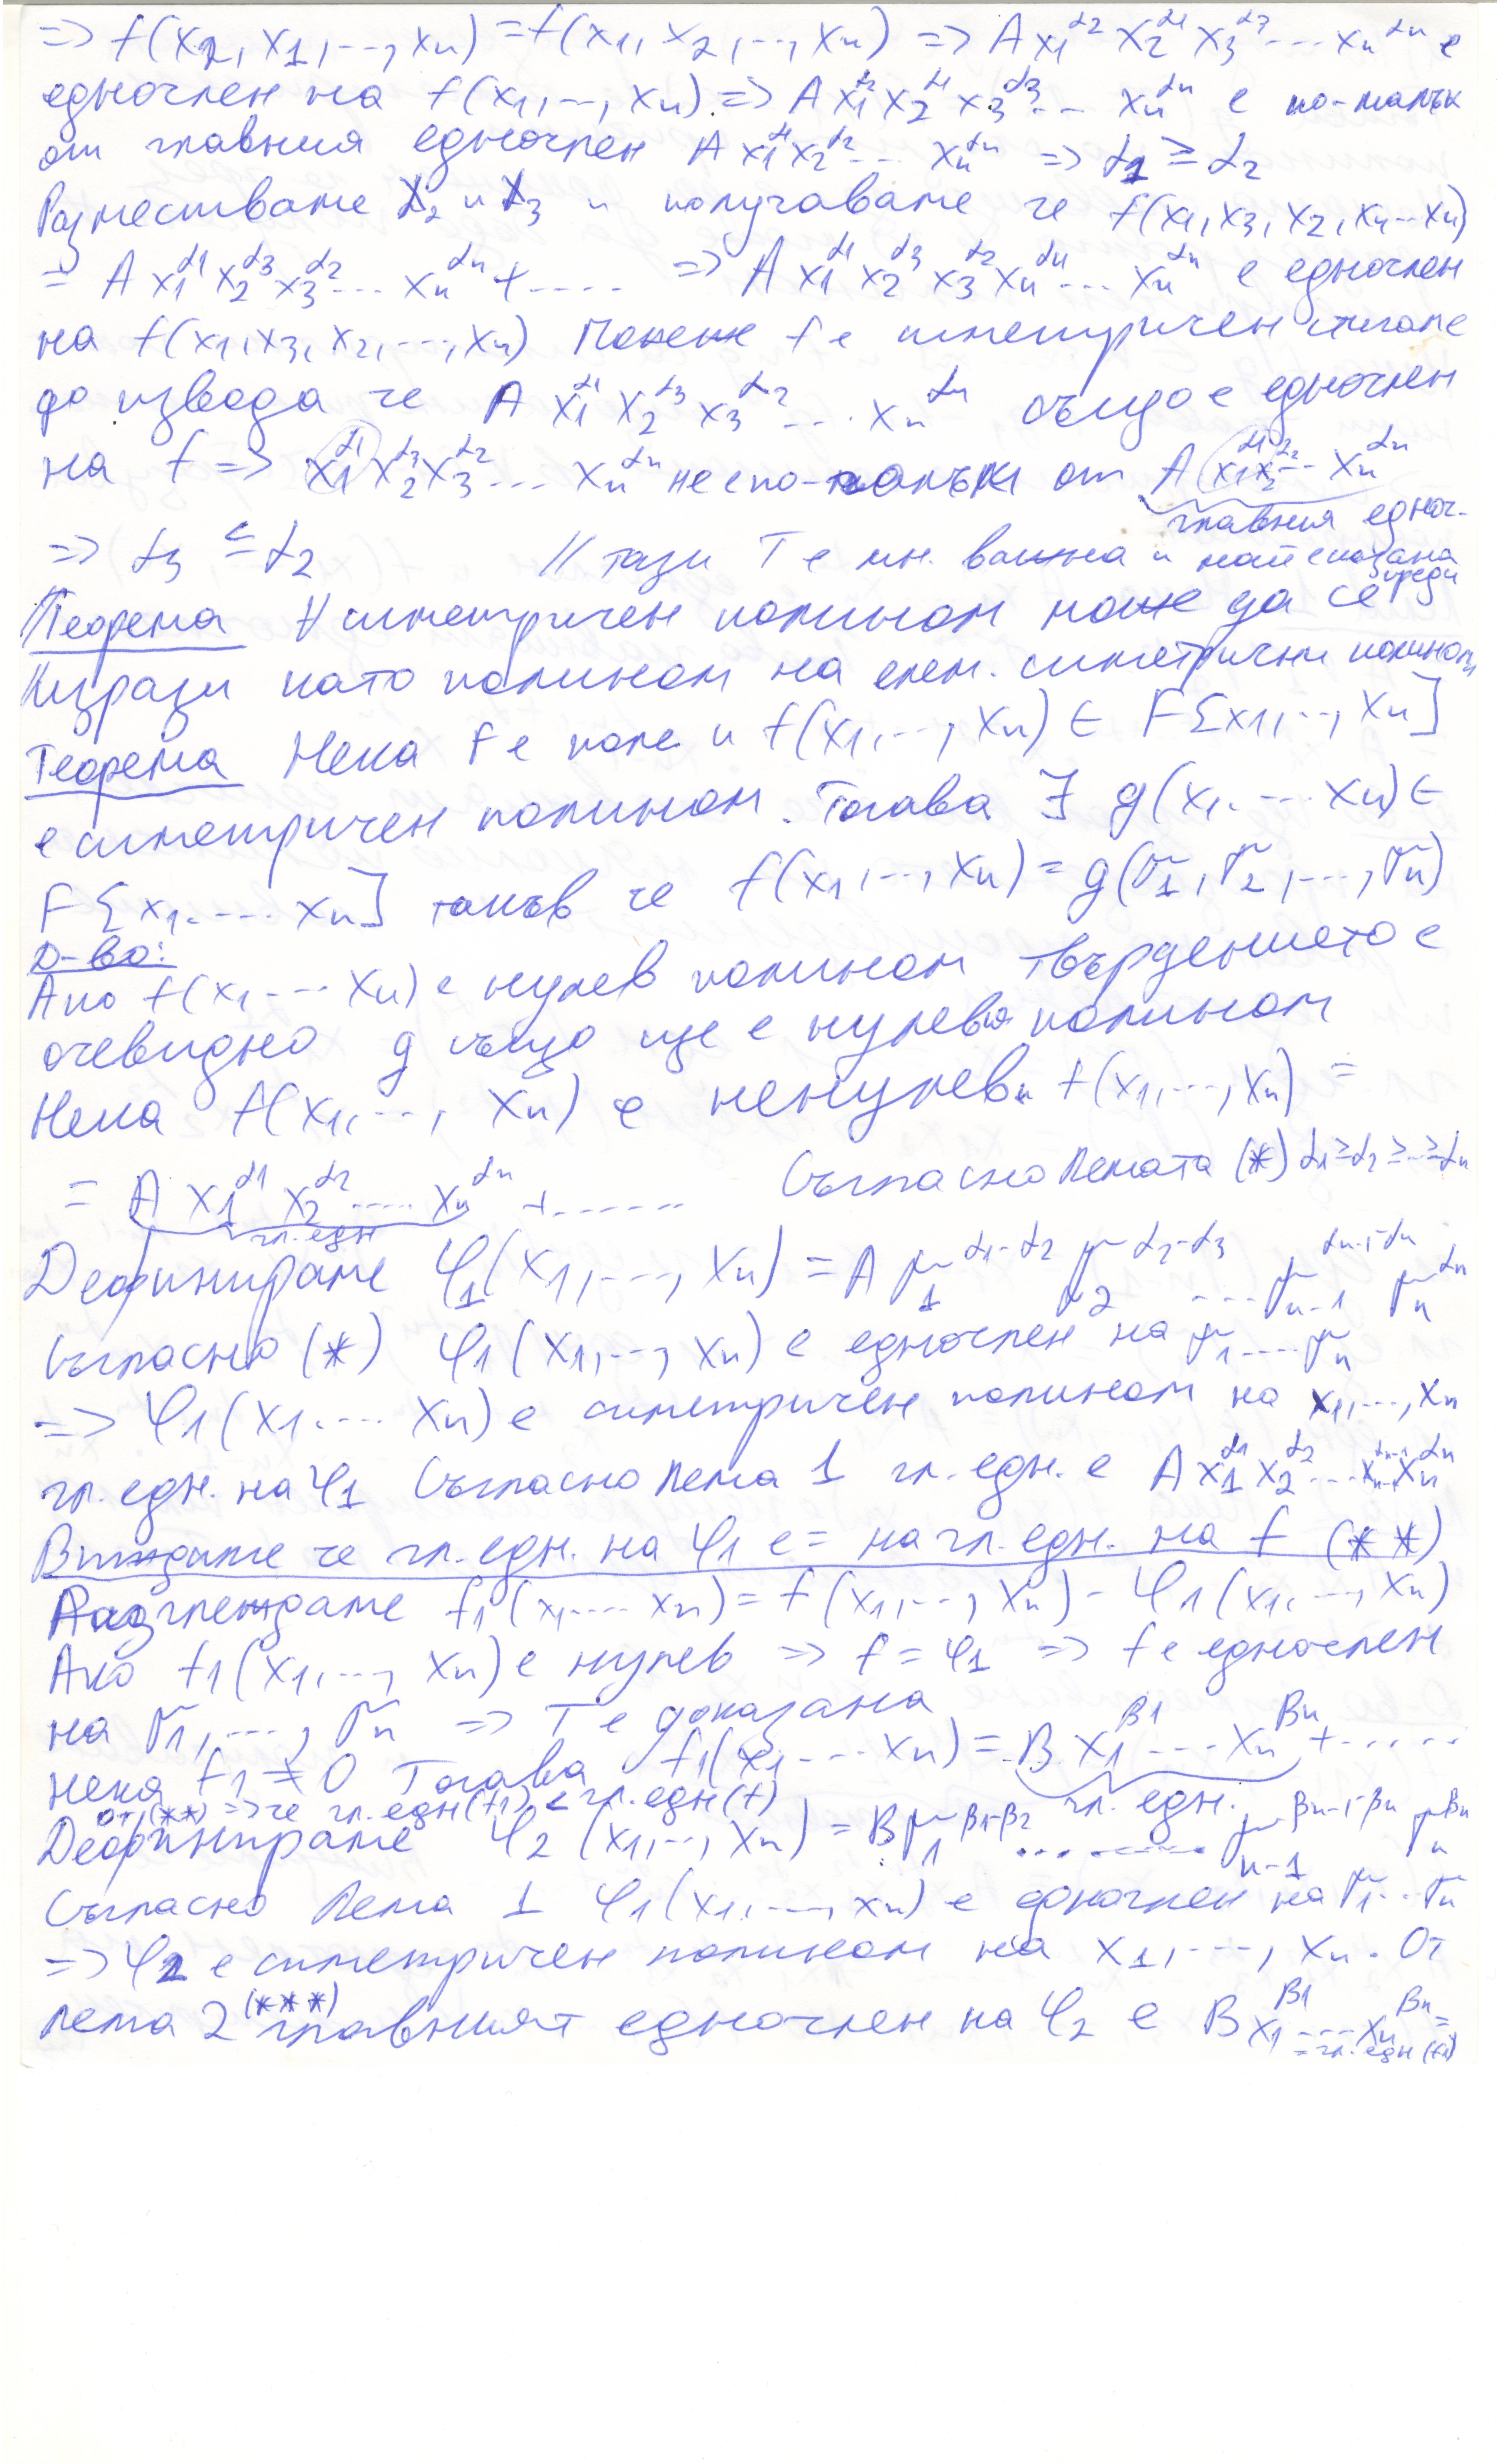 => f(x₂, x₁, ..., xₙ) = f(x₁, x₂, ..., xₙ) => A x₁^α₂ x₂^α₁ x₃^α₃ ... xₙ^αₙ е
едночлен на f(x₁, ..., xₙ). => A x₁^α₂ x₂^α₁ x₃^α₃ ... xₙ^αₙ е по-малък
от главния едночлен A x₁^α₁ x₂^α₂ ... xₙ^αₙ => α₁ ≥ α₂
Разместваме x₂ и x₃ и получаваме че f(x₁, x₃, x₂, x₄ ... xₙ)
= A x₁^α₁ x₂^α₃ x₃^α₂ ... xₙ^αₙ + .... => A x₁^α₁ x₂^α₃ x₃^α₂ x₄^α₄ ... xₙ^αₙ е едночлен
на f(x₁, x₃, x₂, ..., xₙ) Понеже f е симетричен стигаме
до извода че A x₁^α₁ x₂^α₃ x₃^α₂ ... xₙ^αₙ също е едночлен
на f => x₁^α₁ x₂^α₃ x₃^α₂ ... xₙ^αₙ не е по- от A x₁^α₁ x₂^α₂ ... xₙ^αₙ
главния едноч.
=> α₃ ≤ α₂ // тази Т е мн. важна и
Теорема ∀ симетричен полином може да се
изрази като полином на елем. симетрични полиноми
Теорема Нека F е поле и f(x₁, ..., xₙ) ∈ F[x₁, ..., xₙ]
е симетричен полином. Тогава ∃ g(x₁, ... xₙ) ∈
F[x₁. ... xₙ] такъв че f(x₁, ..., xₙ) = g(σ₁, σ₂, ..., σₙ)
Д-во:
Ако f(x₁ ... xₙ) е нулев полином твърдението е
очевидно g също ще е нулевия полином
Нека f(x₁, ..., xₙ) е ненулев и f(x₁, ..., xₙ) =
= A x₁^α₁ x₂^α₂ .... xₙ^αₙ + ....... Съгласно Лемата (*) α₁ ≥ α₂ ≥ ... ≥ αₙ
гл. едн
Дефинираме φ₁(x₁, ..., xₙ) = A σ₁^α₁-α₂ σ₂^α₂-α₃ .... σₙ₋₁^αₙ₋₁-αₙ σₙ^αₙ
Съгласно (*) φ₁(x₁, ..., xₙ) е едночлен на σ₁ .... σₙ
=> φ₁(x₁. ... xₙ) е симетричен полином на x₁, ..., xₙ
гл. едн. на φ₁ Съгласно Лема 1 гл. едн. е A x₁^α₁ x₂^α₂ ... xₙ₋₁^αₙ₋₁ xₙ^αₙ
Виждаме че гл. едн. на φ₁ е = на гл. едн. на f (**)
Разглеждаме f₁(x₁ .... xₙ) = f(x₁, ..., xₙ) - φ₁(x₁, ..., xₙ)
Ако f₁(x₁, ..., xₙ) е нулев => f = φ₁ => f е едночлен
на σ₁, ..., σₙ => Т е доказана
нека f₁ ≠ 0 Тогава f₁(x₁ ... xₙ) = B x₁^β₁ ... xₙ^βₙ + .....
от (**) => че гл. едн(f₁) < гл. едн(f) гл. едн.
Дефинираме φ₂(x₁, ..., xₙ) = B σ₁^β₁-β₂ ......... σₙ₋₁^βₙ₋₁-βₙ σₙ^βₙ
Съгласно Лема 1 φ₁(x₁, ..., xₙ) е едночлен на σ₁ .. σₙ
=> φ₂ е симетричен полином на x₁, ..., xₙ. От
Лема 2 (***) главният едночлен на φ₂ е B x₁^β₁ ... xₙ^βₙ =
= гл. едн (f₁)